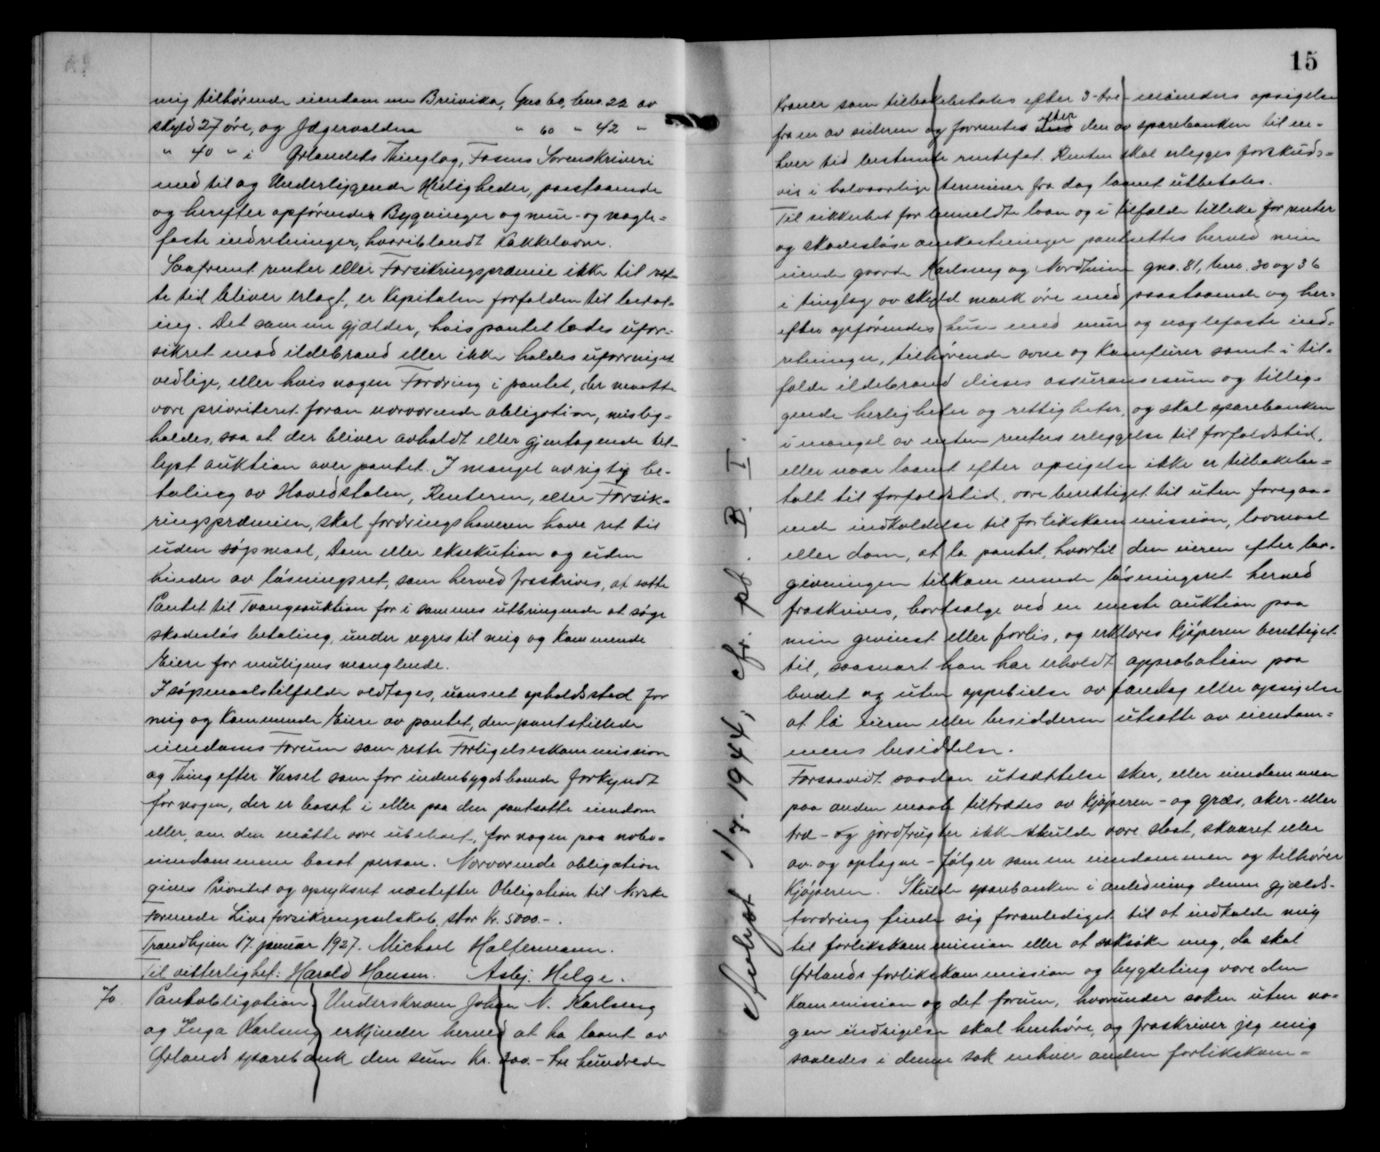 mig tilhørende eiendomme Breivika, Gno 60, bno 22 av
skyld 27 øre, og Jægervolden " 60 " 42 "
" 40 " i Ørlandets Thinglag, Fosens Sorenskriveri
med til og Underliggende Herligheder, paastaaende
og herefter opførendes Bygninger og mur- og nagle-
faste indretninger, hvoriblandt Kakkelovne.
Saafremt renter eller Forsikringspræmie ikke til ret-
te tid bliver erlagt, er Kapitalen forfalden til betal-
ing. Det samme gjælder, hvis pantet lades ufor-
sikret mod ildebrand eller ikke holdes uforringet
vedlige, eller hvis nogen Fordring i pantet, der maatte
være prioriteret foran nærværende obligation, mislig-
holdes, saa at der bliver avholdt eller gjentagende til-
lyst auktion over pantet. I mangel av rigtig be-
taling av Hovedstolen, Renterne, eller Forsik-
ringspræmien, skal fordringshaveren have ret til
uden søgsmaal, Dom eller eksekution og uden
hinder av løsningsret, som herved fraskrives, at sætte
Pantet til Tvangsauktion for i sammes utbringende at søge
skadesløs betaling, under regres til mig og Kommende
Eiere for muligens manglende.
I søgsmaalstilfælde vedtages, uanseet opholdssted for
mig og Kommende Eiere av pantet, den pantstillede
eiendoms Forum som rette Forligelseskommission
og Thing efter Varsel som for indenbygdsboende forkyndt
for nogen, der er bosat i eller paa den pantsatte eiendom
eller, om den måtte være ubeboet, for nogen paa nabo-
eiendommene bosat person. Nærværende obligation
gives Prioritet og opryksret næstefter Obligation til Norske
Forenede Livsforsikringsselskab, stor Kr. 5000.-.
Trondhjem 17. januar 1927. Michael Haltermann.
Til vitterlighet: Harald Hansen. Asbj. Helge.
70 Pantobligation. Undertegnede Johan N. Karlseng
og Inga Karlseng erkjender herved at ha laant av
Ørlands sparebank den sum Kr. 300.- tre hundrede
15
kroner som tilbakebetales efter 3-tre-måneders opsigelse
fra en av siderne og forrentes efter den av sparebanken til en-
hver tid bestemte rentefot. Renten skal erlegges forskuds-
vis i halvaarlige terminer fra dag laanet utbetales.
Til sikkerhet for anmeldte laan og i tilfælde tillike for renter
og skadesløse omkostninger pantsettes herved min
eiende gaard Karlseng og Nordheim gno. 81, bno. 30 og 36
i tinglag av skyld mark øre med paastaaende og her-
efter opførendes hus med mur og naglefaste ind-
retninger, tilhørende ovne og Komfurer samt i til-
fælde ildebrand disses assuransesum og tillig-
gende herligheter og rettigheter, og skal sparebanken
i mangel av enten renters erleggelse til forfaldstid,
eller naar laanet efter opsigelse ikke er tilbakebe-
talt til forfaldstid, være berettiget til uten foregaa-
ende indkaldelse til forlikskommission, lovmaal
eller dom, at la pantet, hvortil den eieren efter lov-
givningen tilkommende løsningsret herved
fraskrives, bortsælge ved en eneste auktion paa
min gevinst eller forlis, og erklæres Kjøperen berettiget
til, saasnart han har erholdt approbation paa
budet og uten oppebielse av fardag eller opsigelse
at la eieren eller besidderen utsætte av eiendom-
mens besiddelse.
Forsaavidt saadan utsættelse sker, eller eiendommen
paa anden maate tiltrædes av Kjøperen - og græs, aker- eller
træ- og jordfrugter ikke skulde være slaat, skaaret eller
av- og optagne - følger samme eiendommen og tilhører
Kjøperen. Skulde sparebanken i anledning denne gjælds-
fordring finde sig foranlediget til at indkalde mig
til forlikskommission eller at saksøke meg, da skal
Ørlands forlikskommission og bygdeting være den
Kommission og det forum, hvorunder saken uten no-
gen indsigelse skal henhøre, og fraskriver jeg mig
saaledes i denne sak enhver anden forlikskom-
Avlyst 1/7. 1944, cfr. pb. B. I.